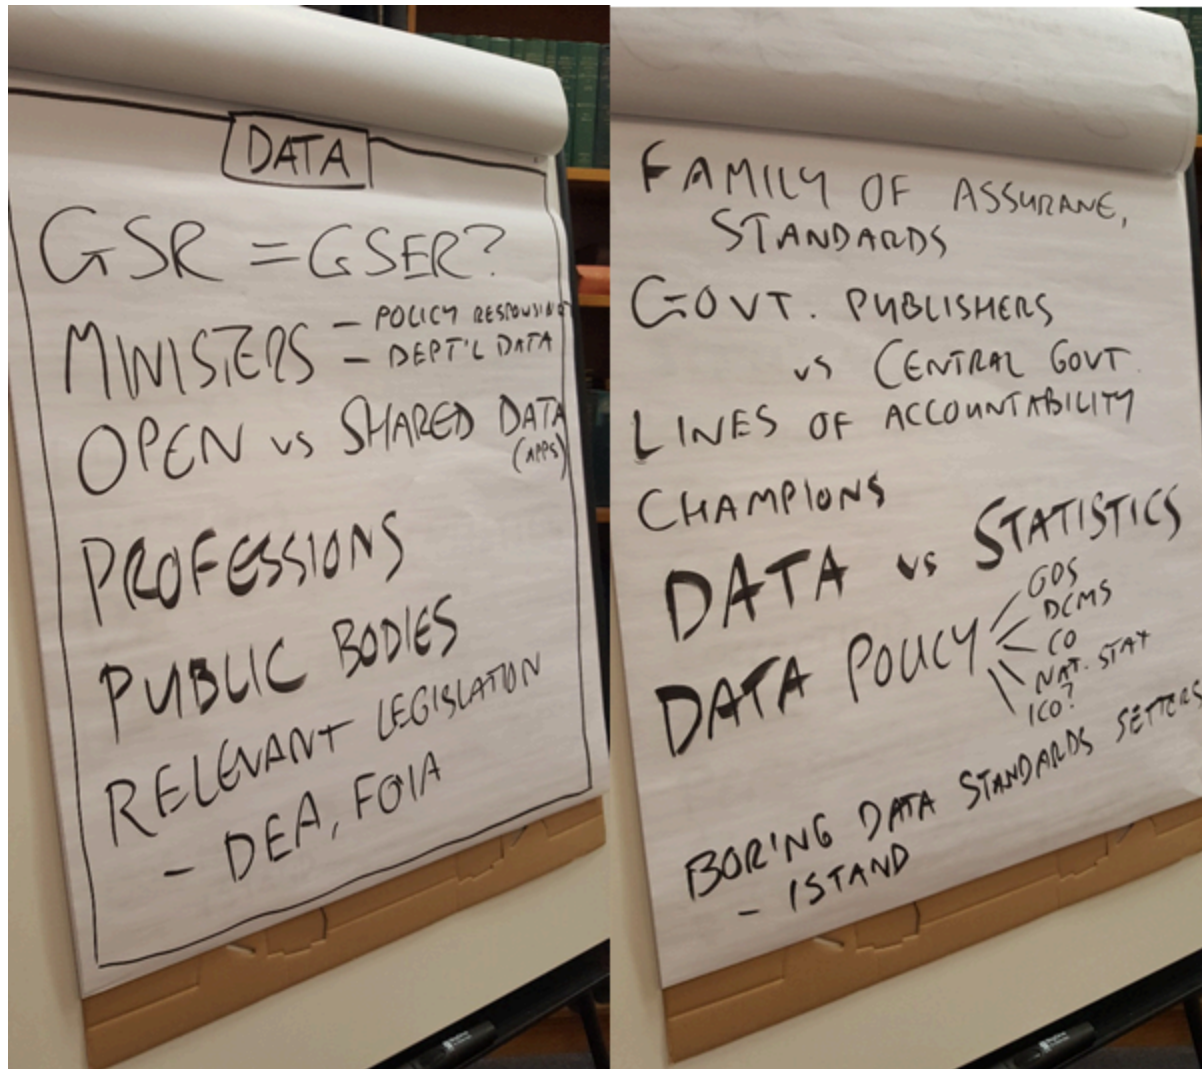 DATA
GSR = GSER?
MINISTERS - POLICY RESPONSING
- DEPT'L DATA
OPEN vs SHARED DATA
(APPS)
PROFESSIONS
PUBLIC BODIES
RELEVANT LEGISLATION
- DEA, FOIA
FAMILY OF ASSURANE,
STANDARDS
GOVT. PUBLISHERS
vs CENTRAL GOVT.
LINES OF ACCOUNTABILITY
CHAMPIONS
DATA vs STATISTICS
DATA POLICY
GDS
DCMS
CO
NAT. STAT
ICO?
BORING DATA STANDARDS SETTERS
- ISTAND